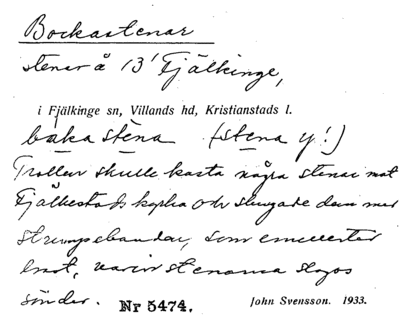 Bockastenar
stenar å 13' Fjälkinge,
i Fjälkinge sn, Villands hd, Kristianstads l.
baka stena (stena y!)
Trollen skulle kasta några stenar mot
Fjälkestads kyrka och slungade dem med
strumpebandar, som emellertid
brast, varvid stenarna slogos
sönder. Nr 5474. John Svensson. 1933.